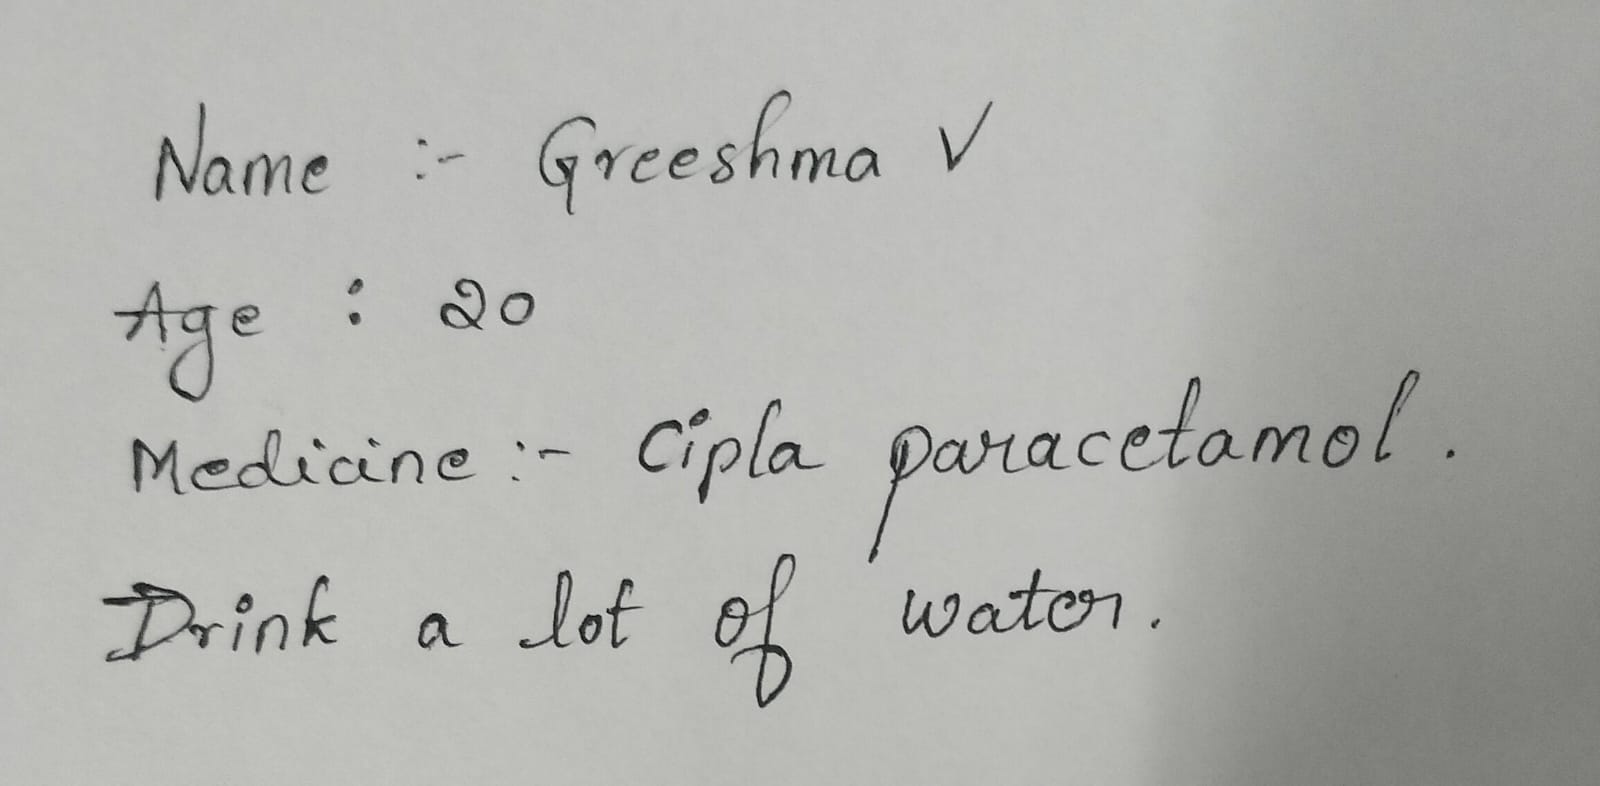 Name :- Greeshma V
Age : 20
Medicine :- Cipla paracetamol.
Drink a lot of water.